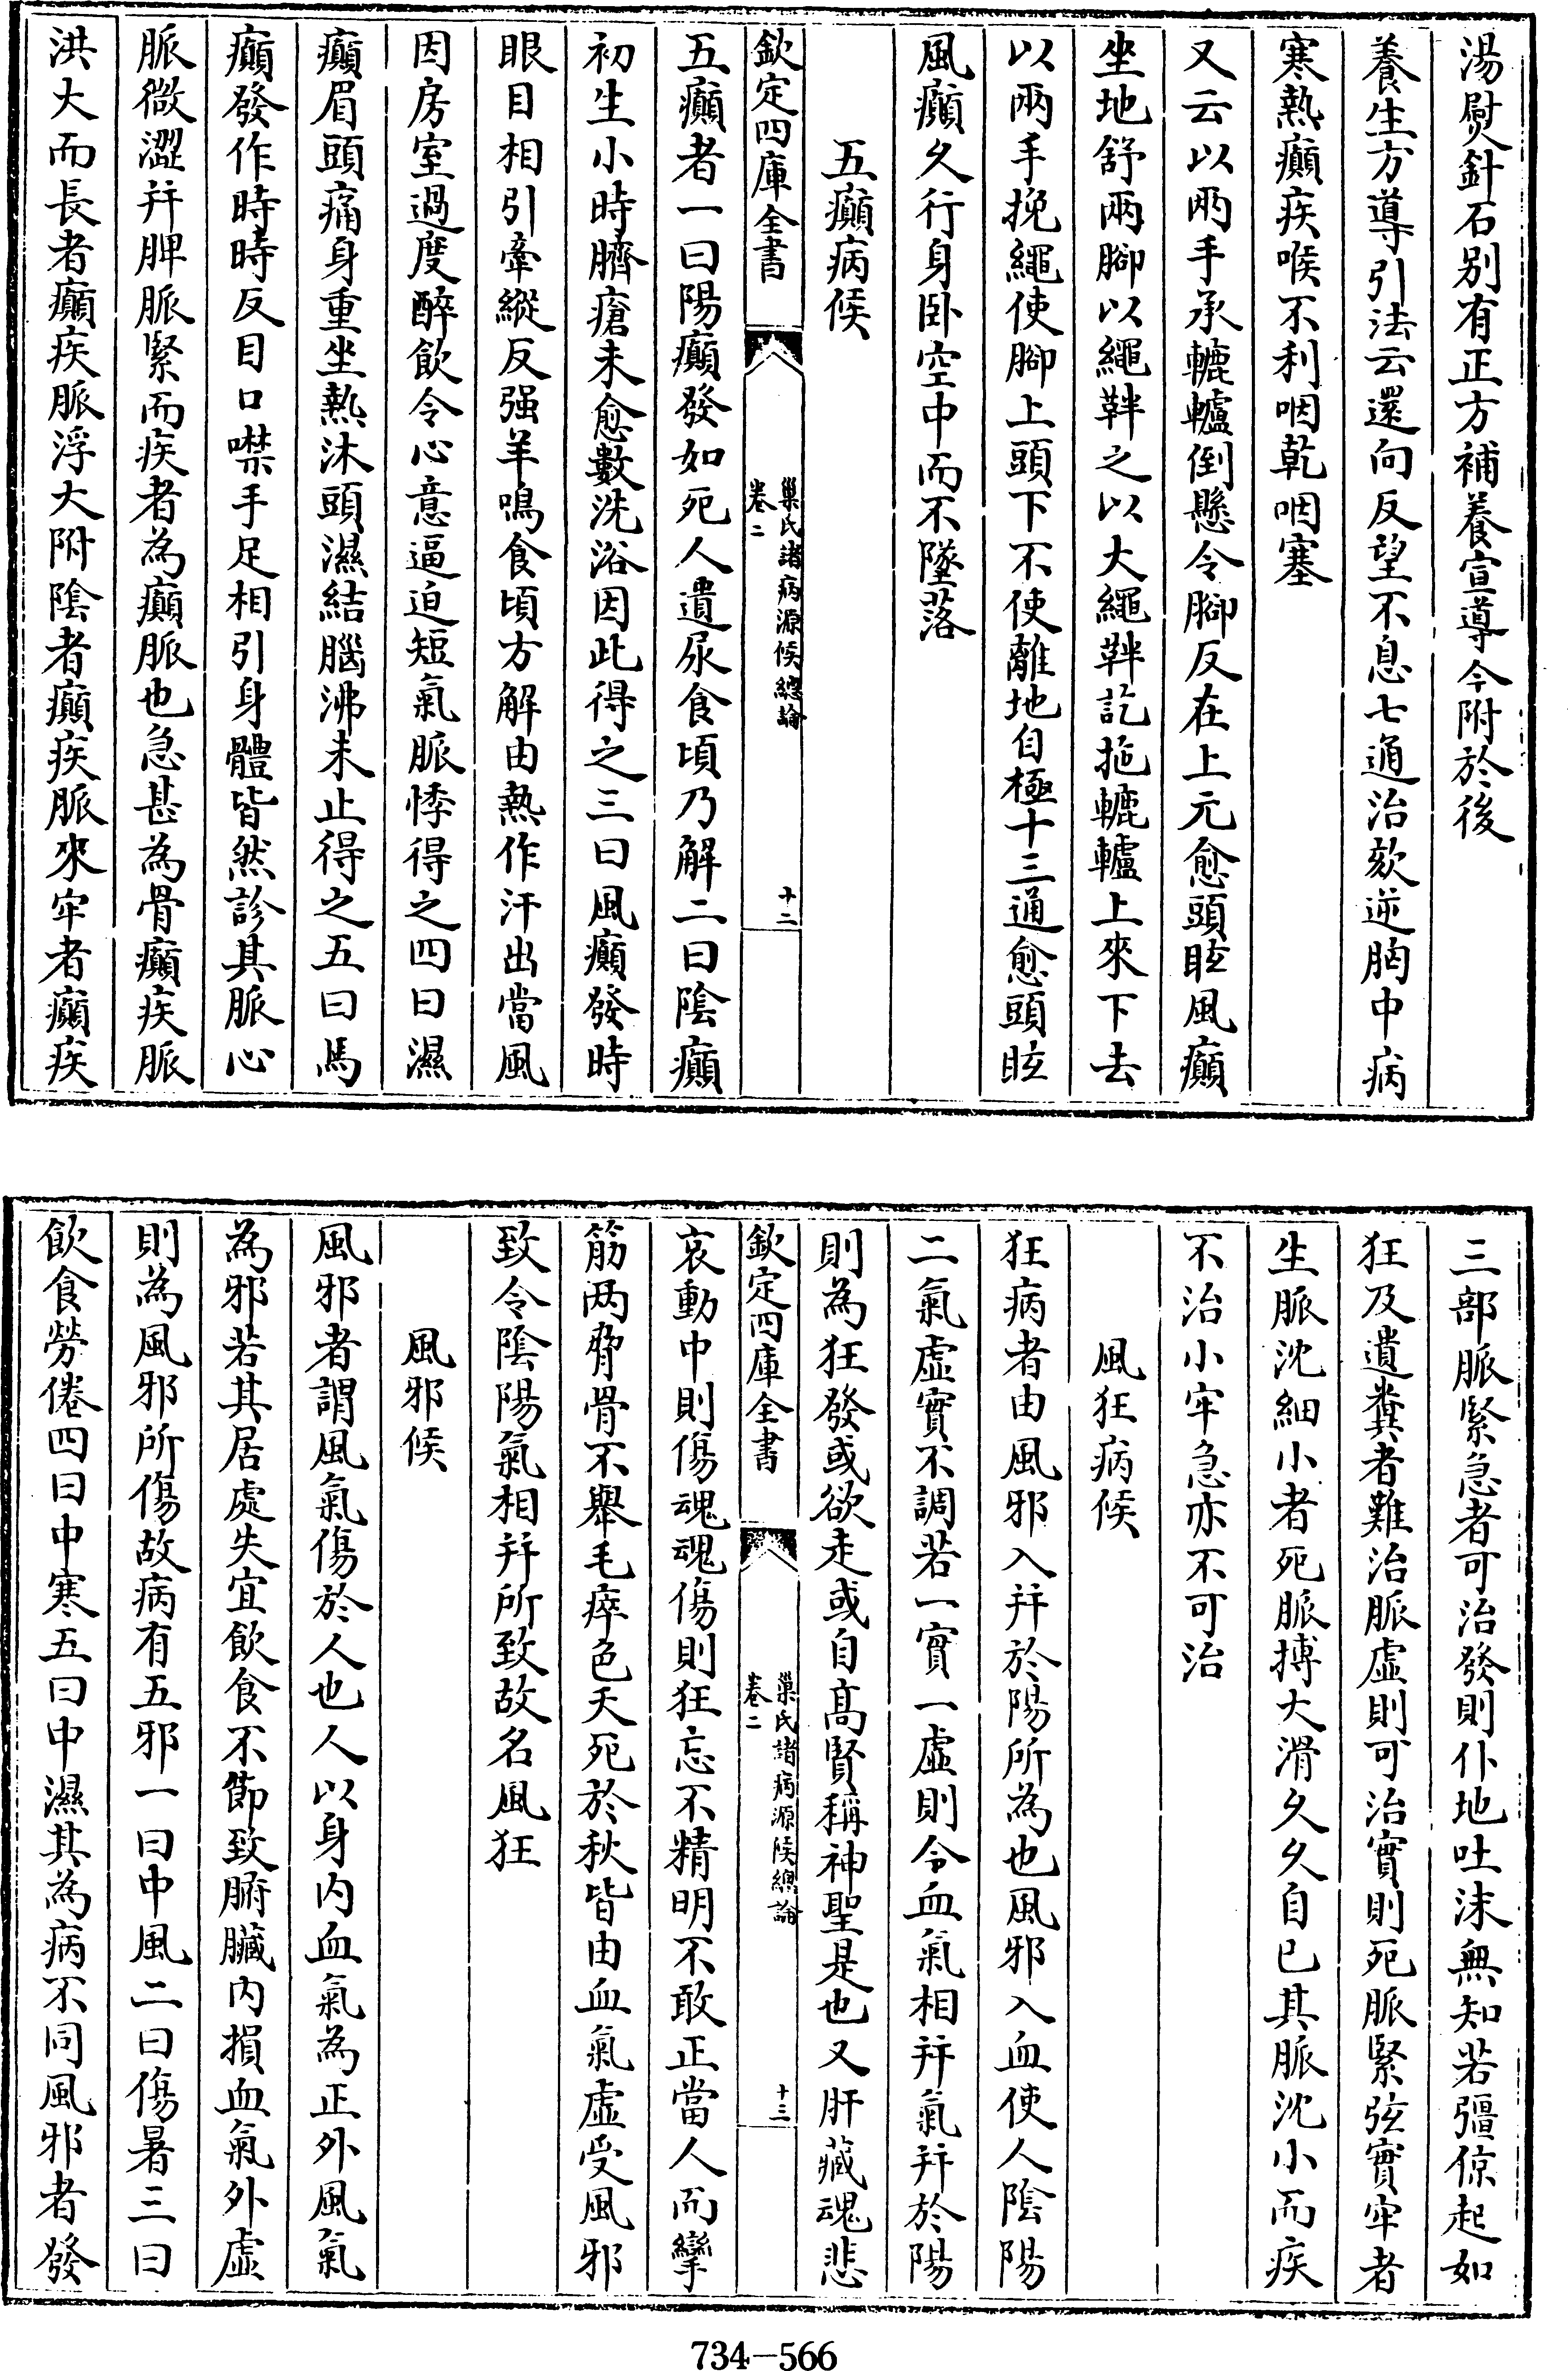 湯熨針石别有正方補養宣導今附於後
養生方導引法云還向反望不息七通治欬逆胸中病
寒熱癲疾喉不利咽乾咽塞
又云以兩手承轆轤倒懸令腳反在上元愈頭眩風癲
坐地舒兩腳以繩靽之以大繩靽訖拖轆轤上來下去
以兩手挽繩使腳上頭下不使離地自極十三通愈頭眩
風癲久行身卧空中而不墜落
五癲病候
欽定四庫全書
巢氏諸病源候總論
卷二
十二
五癲者一曰陽癲發如死人遺尿食頃乃解二曰陰癲
初生小時臍瘡未愈數洗浴因此得之三曰風癲發時
眼目相引牽縱反强羊鳴食頃方解由熱作汗出當風
因房室過度醉飲令心意逼迫短氣脈悸得之四曰濕
癲眉頭痛身重坐熱沐頭濕結腦沸未止得之五曰馬
癲發作時時反目口噤手足相引身體皆然診其脈心
脈微澀并脾脈緊而疾者為癲脈也急甚為骨癲疾脈
洪大而長者癲疾脈浮大附陰者癲疾脈來牢者癲疾
三部脈緊急者可治發則仆地吐沫無知若彊倞起如
狂及遺糞者難治脈虛則可治實則死脈緊弦實牢者
生脈沈細小者死脈搏大滑久久自已其脈沈小而疾
不治小牢急亦不可治
風狂病候
狂病者由風邪入并於陽所為也風邪入血使人陰陽
二氣虛實不調若一實一虛則令血氣相并氣并於陽
則為狂發或欲走或自高賢稱神聖是也又肝藏魂悲
欽定四庫全書
巢氏諸病源候總論
卷二
十三
哀動中則傷魂魂傷則狂忘不精明不敢正當人而攣
筋两脅骨不舉毛瘁色夭死於秋皆由血氣虛受風邪
致令陰陽氣相并所致故名風狂
風邪候
風邪者謂風氣傷於人也人以身内血氣為正外風氣
為邪若其居處失宜飲食不節致腑臟内損血氣外虛
則為風邪所傷故病有五邪一曰中風二曰傷暑三曰
飲食勞倦四曰中寒五曰中濕其為病不同風邪者發
734-566